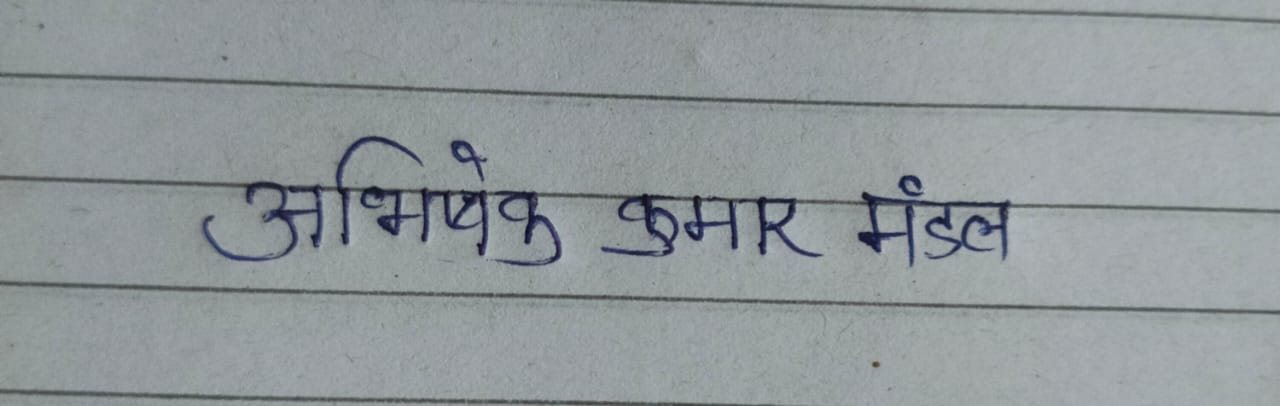 अभिषेक कुमार मंडल